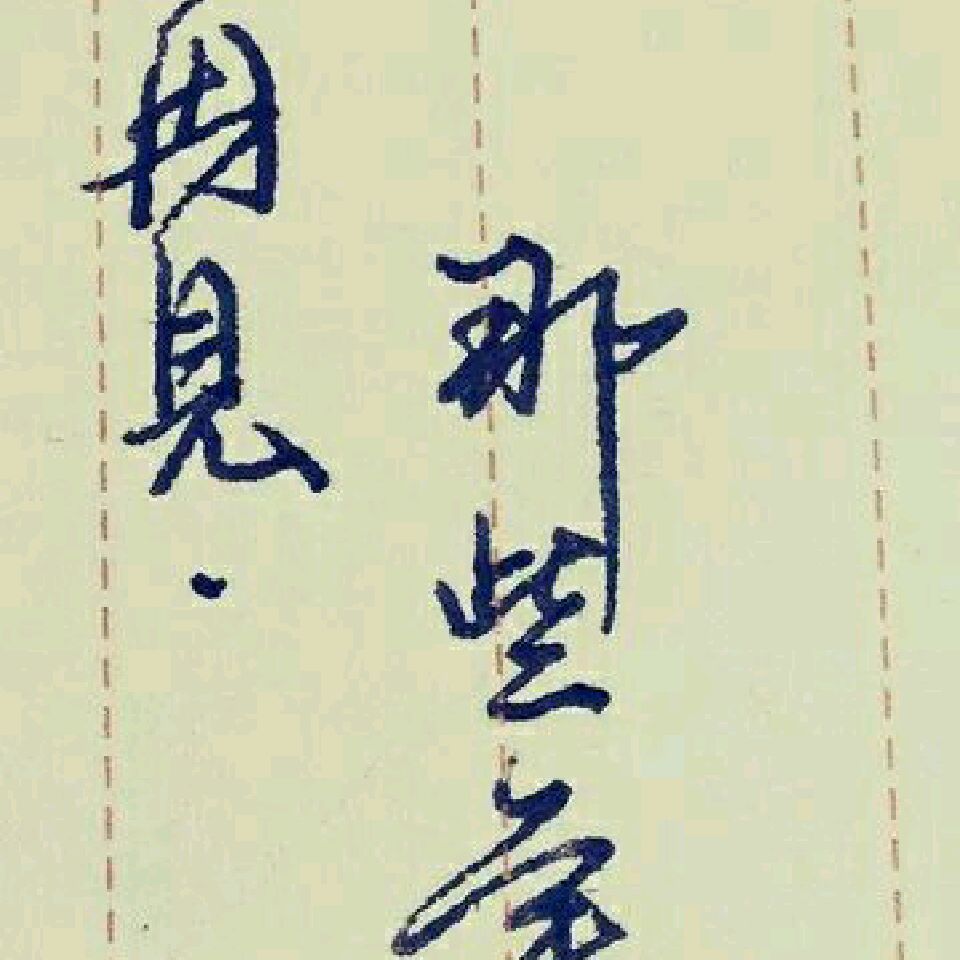 那些
再見.